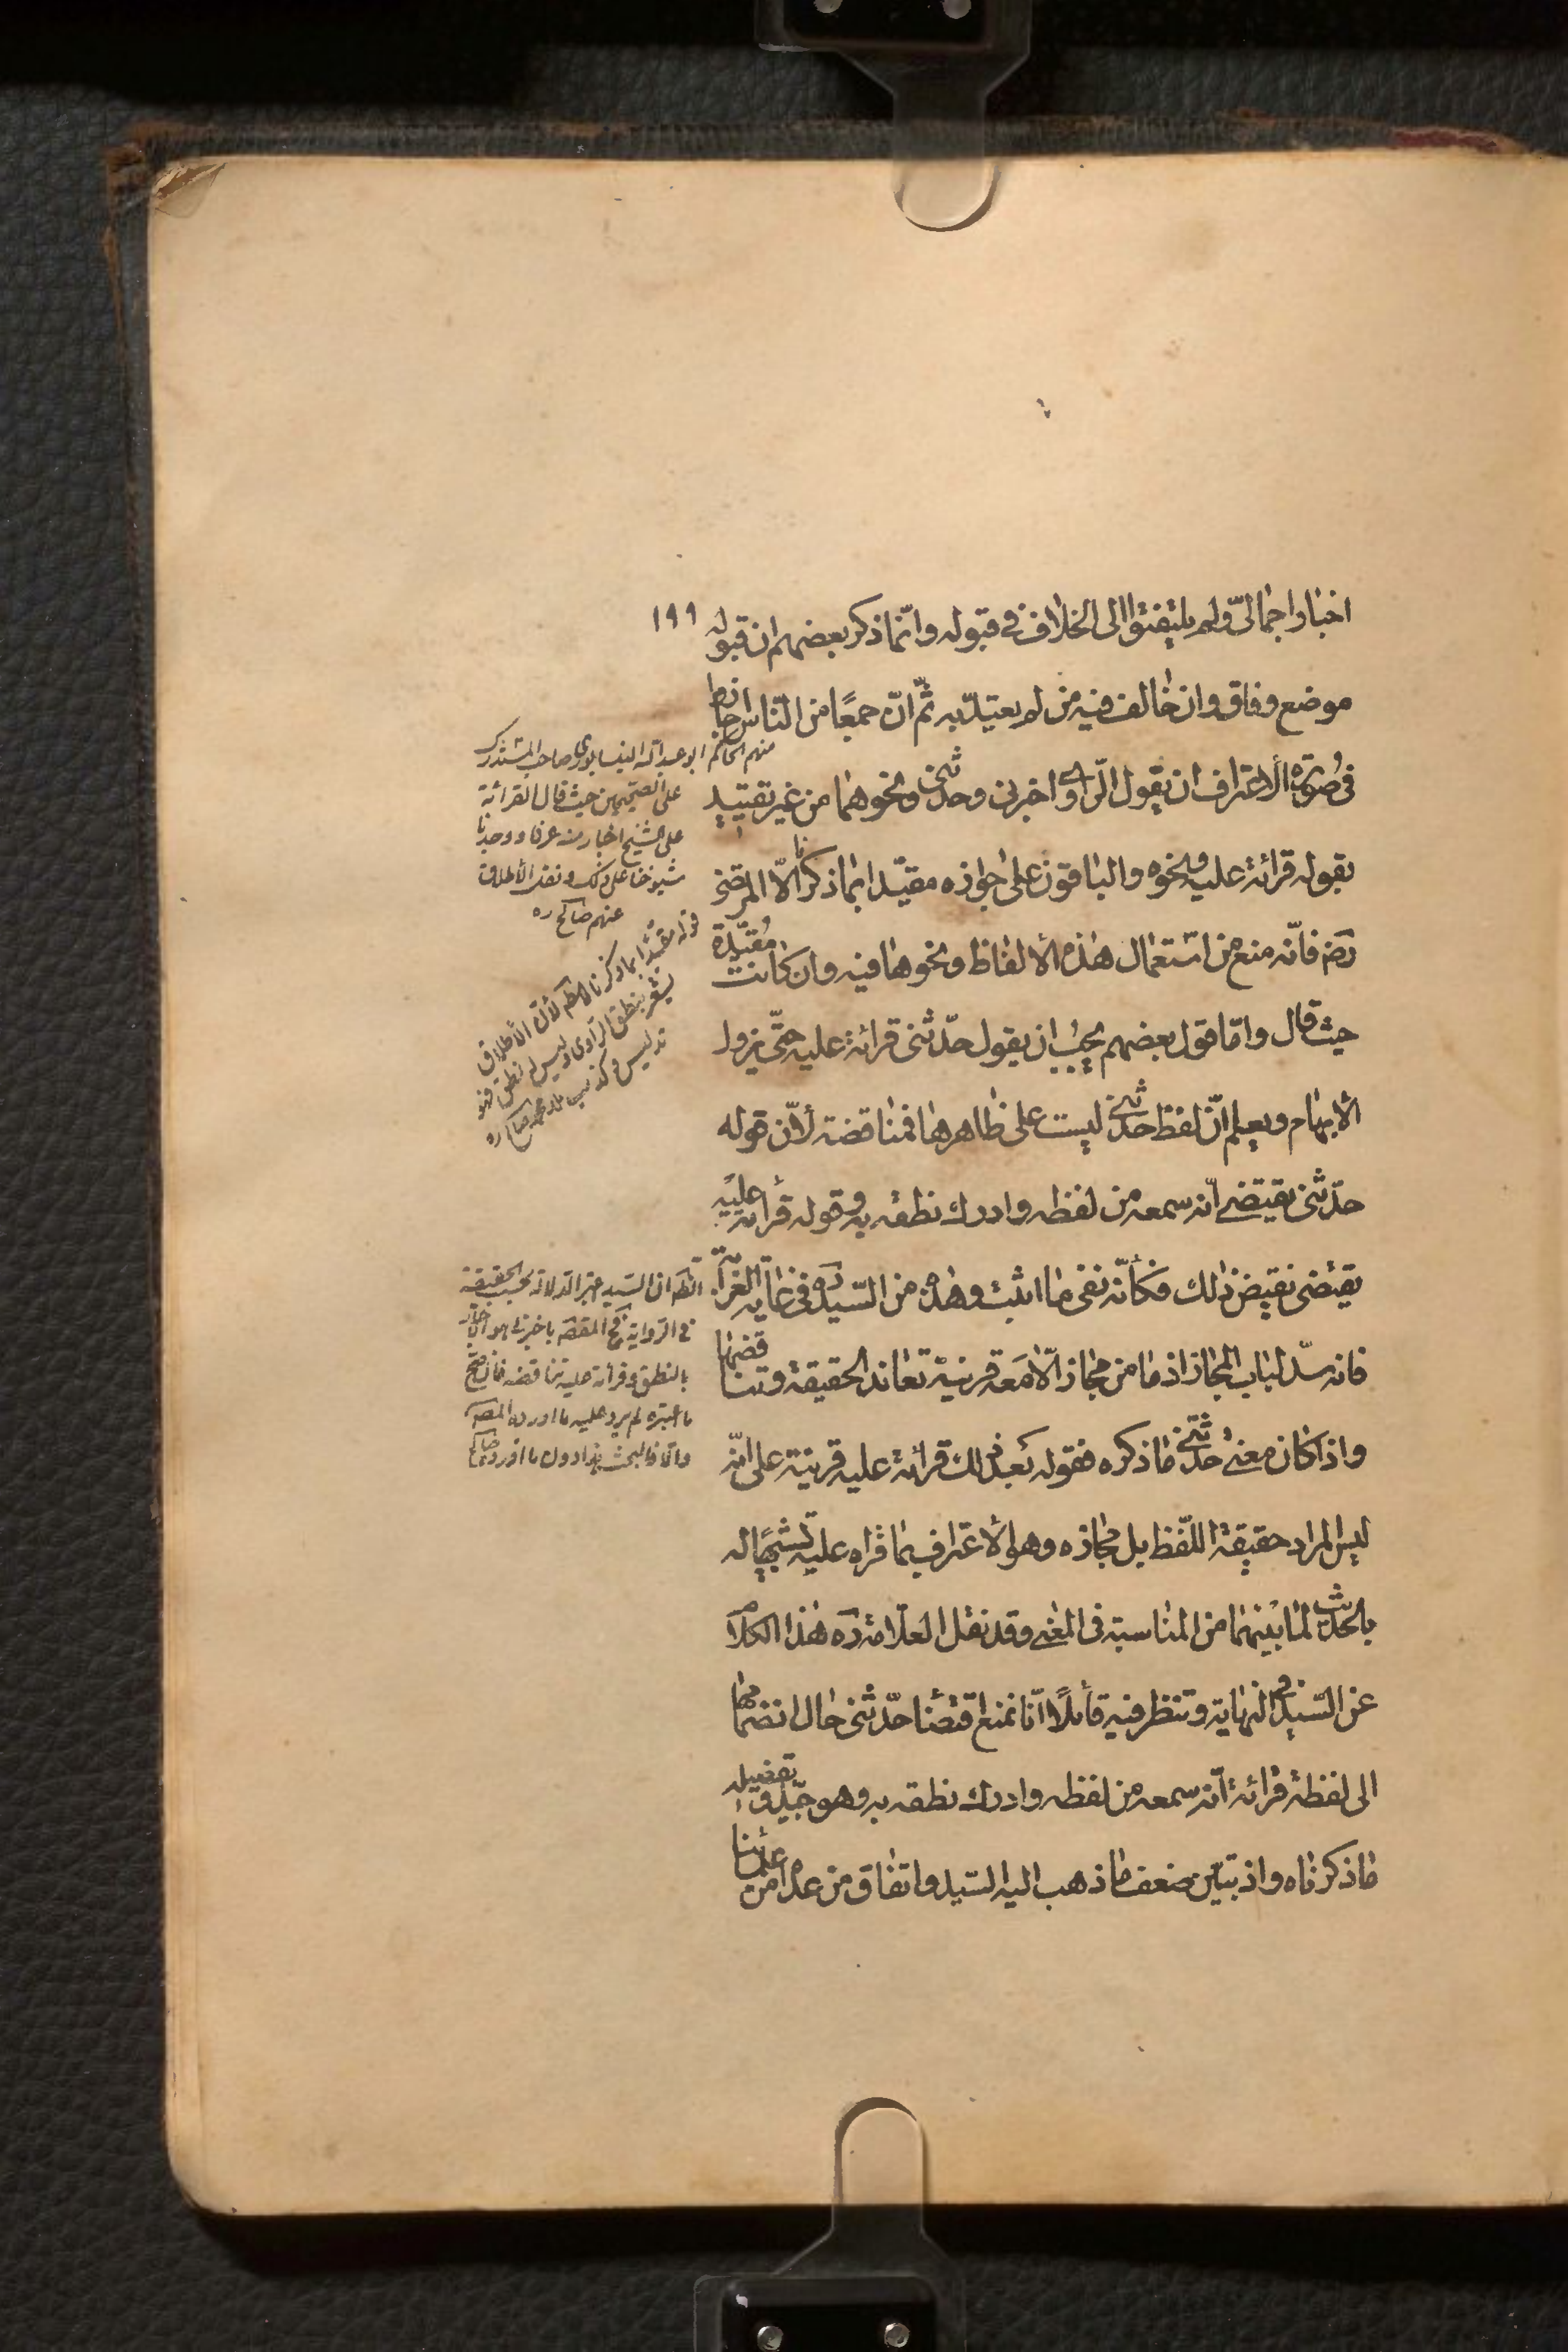 ١٩٩
اخبار اجمالیّ ولم یلتفتوا الی الخلاف فی قبوله وانّما ذکر بعضهم ان قبوله
موضع وفاق وان خالف فیه من لم یعتدّ به ثمّ انّ جمعًا من النّاس اجازوا
فی صُورة الأعتراف ان یقول الرّاوی اخبرنی وحدّثنی ونحوهما من غیر تقیید
بقوله قرائة علیه ونحوه والباقون علی جوازه مقیّدا بما ذکرنا الّا المرتضی
رضه فانّه منع من استعمال هذه الألفاظ ونحوها فیه وان کانت مُقیّدة
حیث قال وامّا قول بعضهم یجبُ ان یقول حدّثنی قرائة علیه حتّی یزول
الأبهام ویعلم انّ لفظ حدّثنی لیست علی ظاهرها فمناقضة لأنّ قوله
حدّثنی یقتضی انّه سمعه من لفظه وادرك نطقه به وقوله قرأته علیه
یقتضی نقیض ذلك فکأنّه نفی ما اثبت وهذا من السّید ره فی غایة الغرابة
فانه سدّ لباب المجاز اذ ما من مجاز الّا مَعه قرینة تعاند الحقیقة وتناقضها
واذا کان معنی حدّثنی ما ذکره فقوله بَعد ذلك قرائة علیه قرینة علی انّه
لیس المراد حقیقة اللّفظ بل مجازه وهو الأعتراف بما قراه علیه تشبیهًا له
بالحدیث لما بینهما من المناسبة فی المعنی وقد نقل العلّامة ره هذا الکلام
عن السّید فی النهایة وتنظر فیه قائلًا انّا نمنع اقتضاء حدّثنی حال انضمامها
الی لفظة قرائة انّه سمعه من لفظه وادرك نطقه به وهو جیّد وتفصیله
ما ذکرناه واذ تبیّن ضعف ما ذهب الیه السّید واتفاق من عداه من علمائنا
منهم الحاکم ابو عبد الله النیسابوری صاحب المستدرك
علی الصحیحین حیث قال القرائة
علی الشیخ اخبار منه عرفا ووجدنا
شیوخنا علی ذلك ونقل الأطلاق
عنهم صالح ره
قوله مقیّدا بما ذکرنا لأنّ الأطلاق
یشعر بنطق الراوی ولیس له نطق فهو
تدلیس وکذب صالح ره
الظّه ان السّید اعتبر الدلالة بحسب الحقیقة
بالنطق وقرأته علیه تناقضه
ما اعتبره لم یرد علیه ما اورده المصّه